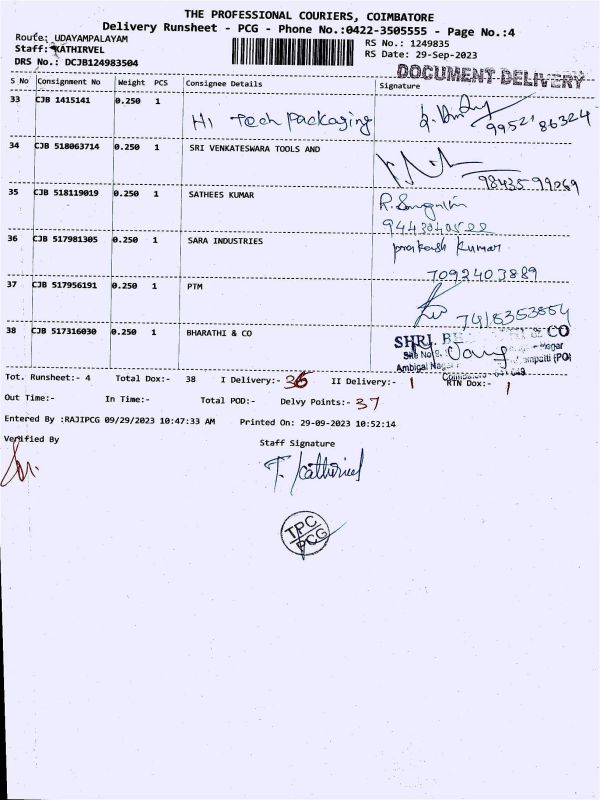 THE PROFESSIONAL COURIERS, COIMBATORE
Delivery Runsheet - PCG - Phone No.:0422-3505555 - Page No.:4
Route: UDAYAMPALAYAM
RS No.: 1249835
Staff: KATHIRVEL
RS Date: 29-Sep-2023
DRS No.: DCJB124983504
DOCUMENT DELIVERY
S No Consignment No Weight PCS Consignee Details Signature
33 CJB 1415141 0.250 1 Hi Tech packaging
99521 86324
34 CJB 518063714 0.250 1 SRI VENKATESWARA TOOLS AND
98435 99269
35 CJB 518119019 0.250 1 SATHEES KUMAR
36 CJB 517981305 0.250 1 SARA INDUSTRIES prakash kumar
7092403889
37 CJB 517956191 0.250 1 PTM
7418353854
38 CJB 517316030 0.250 1 BHARATHI & CO
SHRI. & CO
Site No
Ambigai
Tot. Runsheet:- 4 Total Dox:- 38 I Delivery:- 36 II Delivery:- 1 RTN Dox:- 1
Out Time:- In Time:- Total POD:- Delvy Points:- 37
Entered By :RAJIPCG 09/29/2023 10:47:33 AM Printed On: 29-09-2023 10:52:14
Verified By Staff Signature
TPC
PCG